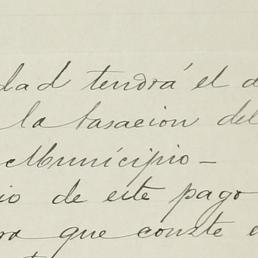 dad tendrá el d
la tasacion del
Municipio—
io de este pago
ra que conste e